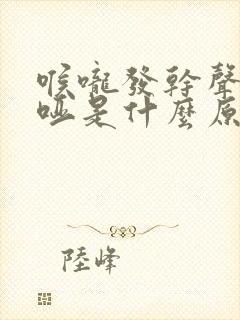 喉嚨發幹聲
啞是什麼原
陸峰